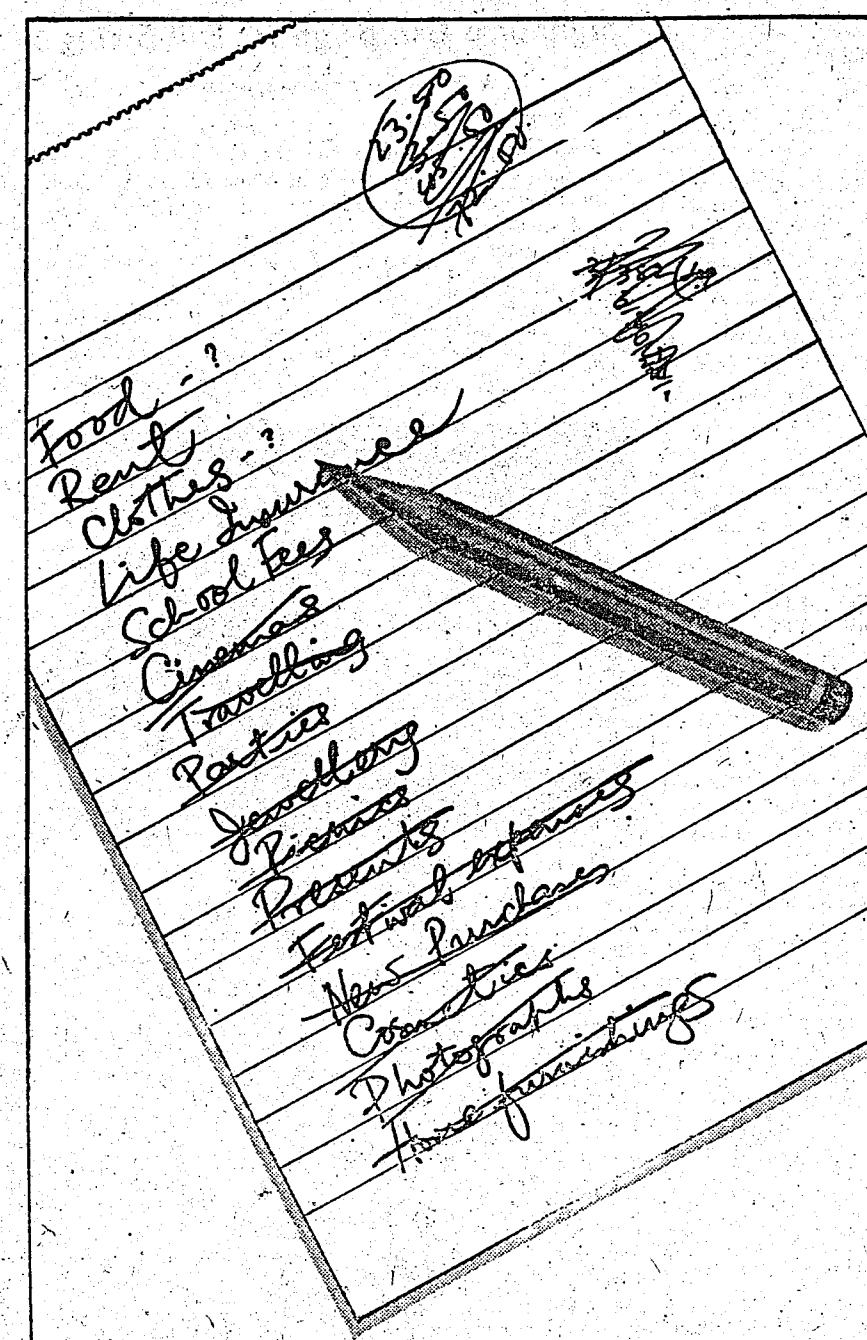 23.90
Food - ?
Rent
Clothes - ?
Life Insurance
School Fees
Cinemas
Travelling
Parties
Jewellery
Picnics
Presents
Festival expenses
New Purchases
Cosmetics
Photographs
Home furnishings